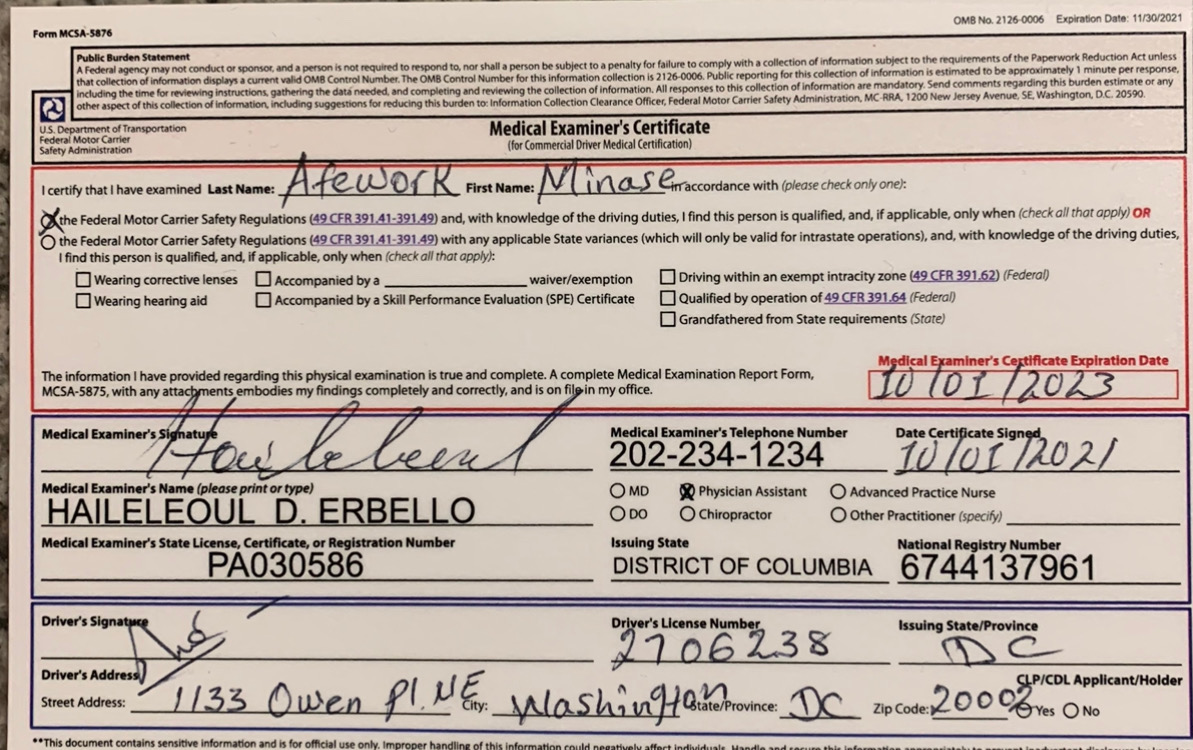 OMB No. 2126-0006 Expiration Date: 11/30/2021
Form MCSA-5876
Public Burden Statement
A Federal agency may not conduct or sponsor, and a person is not required to respond to, nor shall a person be subject to a penalty for failure to comply with a collection of information subject to the requirements of the Paperwork Reduction Act unless
that collection of information displays a current valid OMB Control Number. The OMB Control Number for this information collection is 2126-0006. Public reporting for this collection of information is estimated to be approximately 1 minute per response,
including the time for reviewing instructions, gathering the data needed, and completing and reviewing the collection of information. All responses to this collection of information are mandatory. Send comments regarding this burden estimate or any
other aspect of this collection of information, including suggestions for reducing this burden to: Information Collection Clearance Officer, Federal Motor Carrier Safety Administration, MC-RRA, 1200 New Jersey Avenue, SE, Washington, D.C. 20590.
U.S. Department of Transportation
Federal Motor Carrier
Safety Administration
Medical Examiner's Certificate
(for Commercial Driver Medical Certification)
I certify that I have examined Last Name: Afework First Name: Minase in accordance with (please check only one):
the Federal Motor Carrier Safety Regulations (49 CFR 391.41-391.49) and, with knowledge of the driving duties, I find this person is qualified, and, if applicable, only when (check all that apply) OR
the Federal Motor Carrier Safety Regulations (49 CFR 391.41-391.49) with any applicable State variances (which will only be valid for intrastate operations), and, with knowledge of the driving duties,
I find this person is qualified, and, if applicable, only when (check all that apply):
Wearing corrective lenses Accompanied by a waiver/exemption Driving within an exempt intracity zone (49 CFR 391.62) (Federal)
Wearing hearing aid Accompanied by a Skill Performance Evaluation (SPE) Certificate Qualified by operation of 49 CFR 391.64 (Federal)
Grandfathered from State requirements (State)
Medical Examiner's Certificate Expiration Date
The information I have provided regarding this physical examination is true and complete. A complete Medical Examination Report Form,
MCSA-5875, with any attachments embodies my findings completely and correctly, and is on file in my office.
10/01/2023
Medical Examiner's Signature Medical Examiner's Telephone Number Date Certificate Signed
202-234-1234 10/01/2021
Medical Examiner's Name (please print or type) MD Physician Assistant Advanced Practice Nurse
HAILELEOUL D. ERBELLO DO Chiropractor Other Practitioner (specify)
Medical Examiner's State License, Certificate, or Registration Number Issuing State National Registry Number
PA030586 DISTRICT OF COLUMBIA 6744137961
Driver's Signature Driver's License Number Issuing State/Province
2706238 DC
Driver's Address CLP/CDL Applicant/Holder
Street Address: 1133 Owen Pl. NE City: Washington State/Province: DC Zip Code: 20002 Yes No